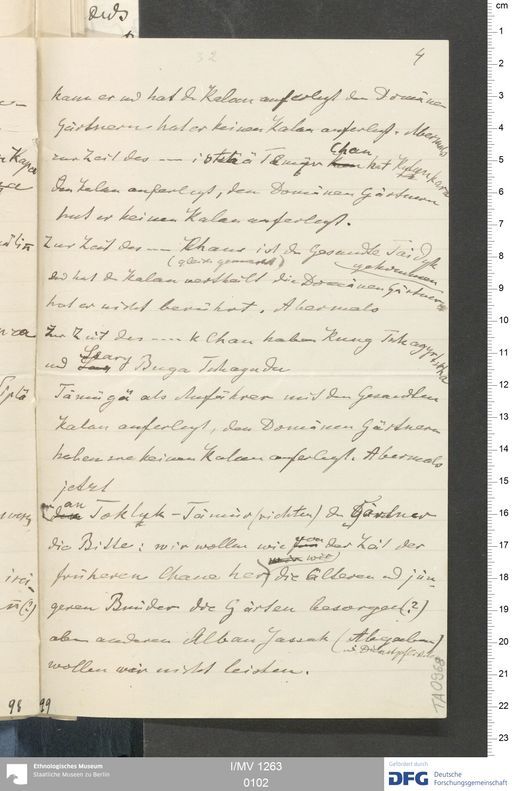 32
4
kam er und hat den Kalan auferlegt den Domänen
Gärtnern hat er keinen Kalan auferlegt. Abermals
zur Zeit des — Tämür Chan hat
den Kalan auferlegt, den Domänen Gärtnern
hat er keinen Kalan auferlegt.
Zur Zeit des — Chans ist der Gesandte
gekommen
(gleich gemacht)
und hat den Kalan vertheilt die Domänen Gärtner
hat er nicht berührt. Abermals
Zur Zeit des — k Chan haben Kung
und Buga
Tämügä als Anführer mit den Gesandten
Kalan auferlegt, den Domänen Gärtnern
haben sie keinen Kalan auferlegt. Abermals
jetzt
an Toklyk-Tämür (richten) die Gärtner
die Bitte: wir wollen wie von der Zeit der
früheren Chane her, die älteren und jün-
geren Brüder die Gärten besorgen (?)
aber anderen Alban Jassak (Abgaben)
wollen wir nicht leisten.
TA0968
98
99
cm
1
2
3
4
5
6
7
8
9
10
11
12
13
14
15
16
17
18
19
20
21
22
23
Ethnologisches Museum
Staatliche Museen zu Berlin
I/MV 1263
0102
Gefördert durch
DFG
Deutsche
Forschungsgemeinschaft